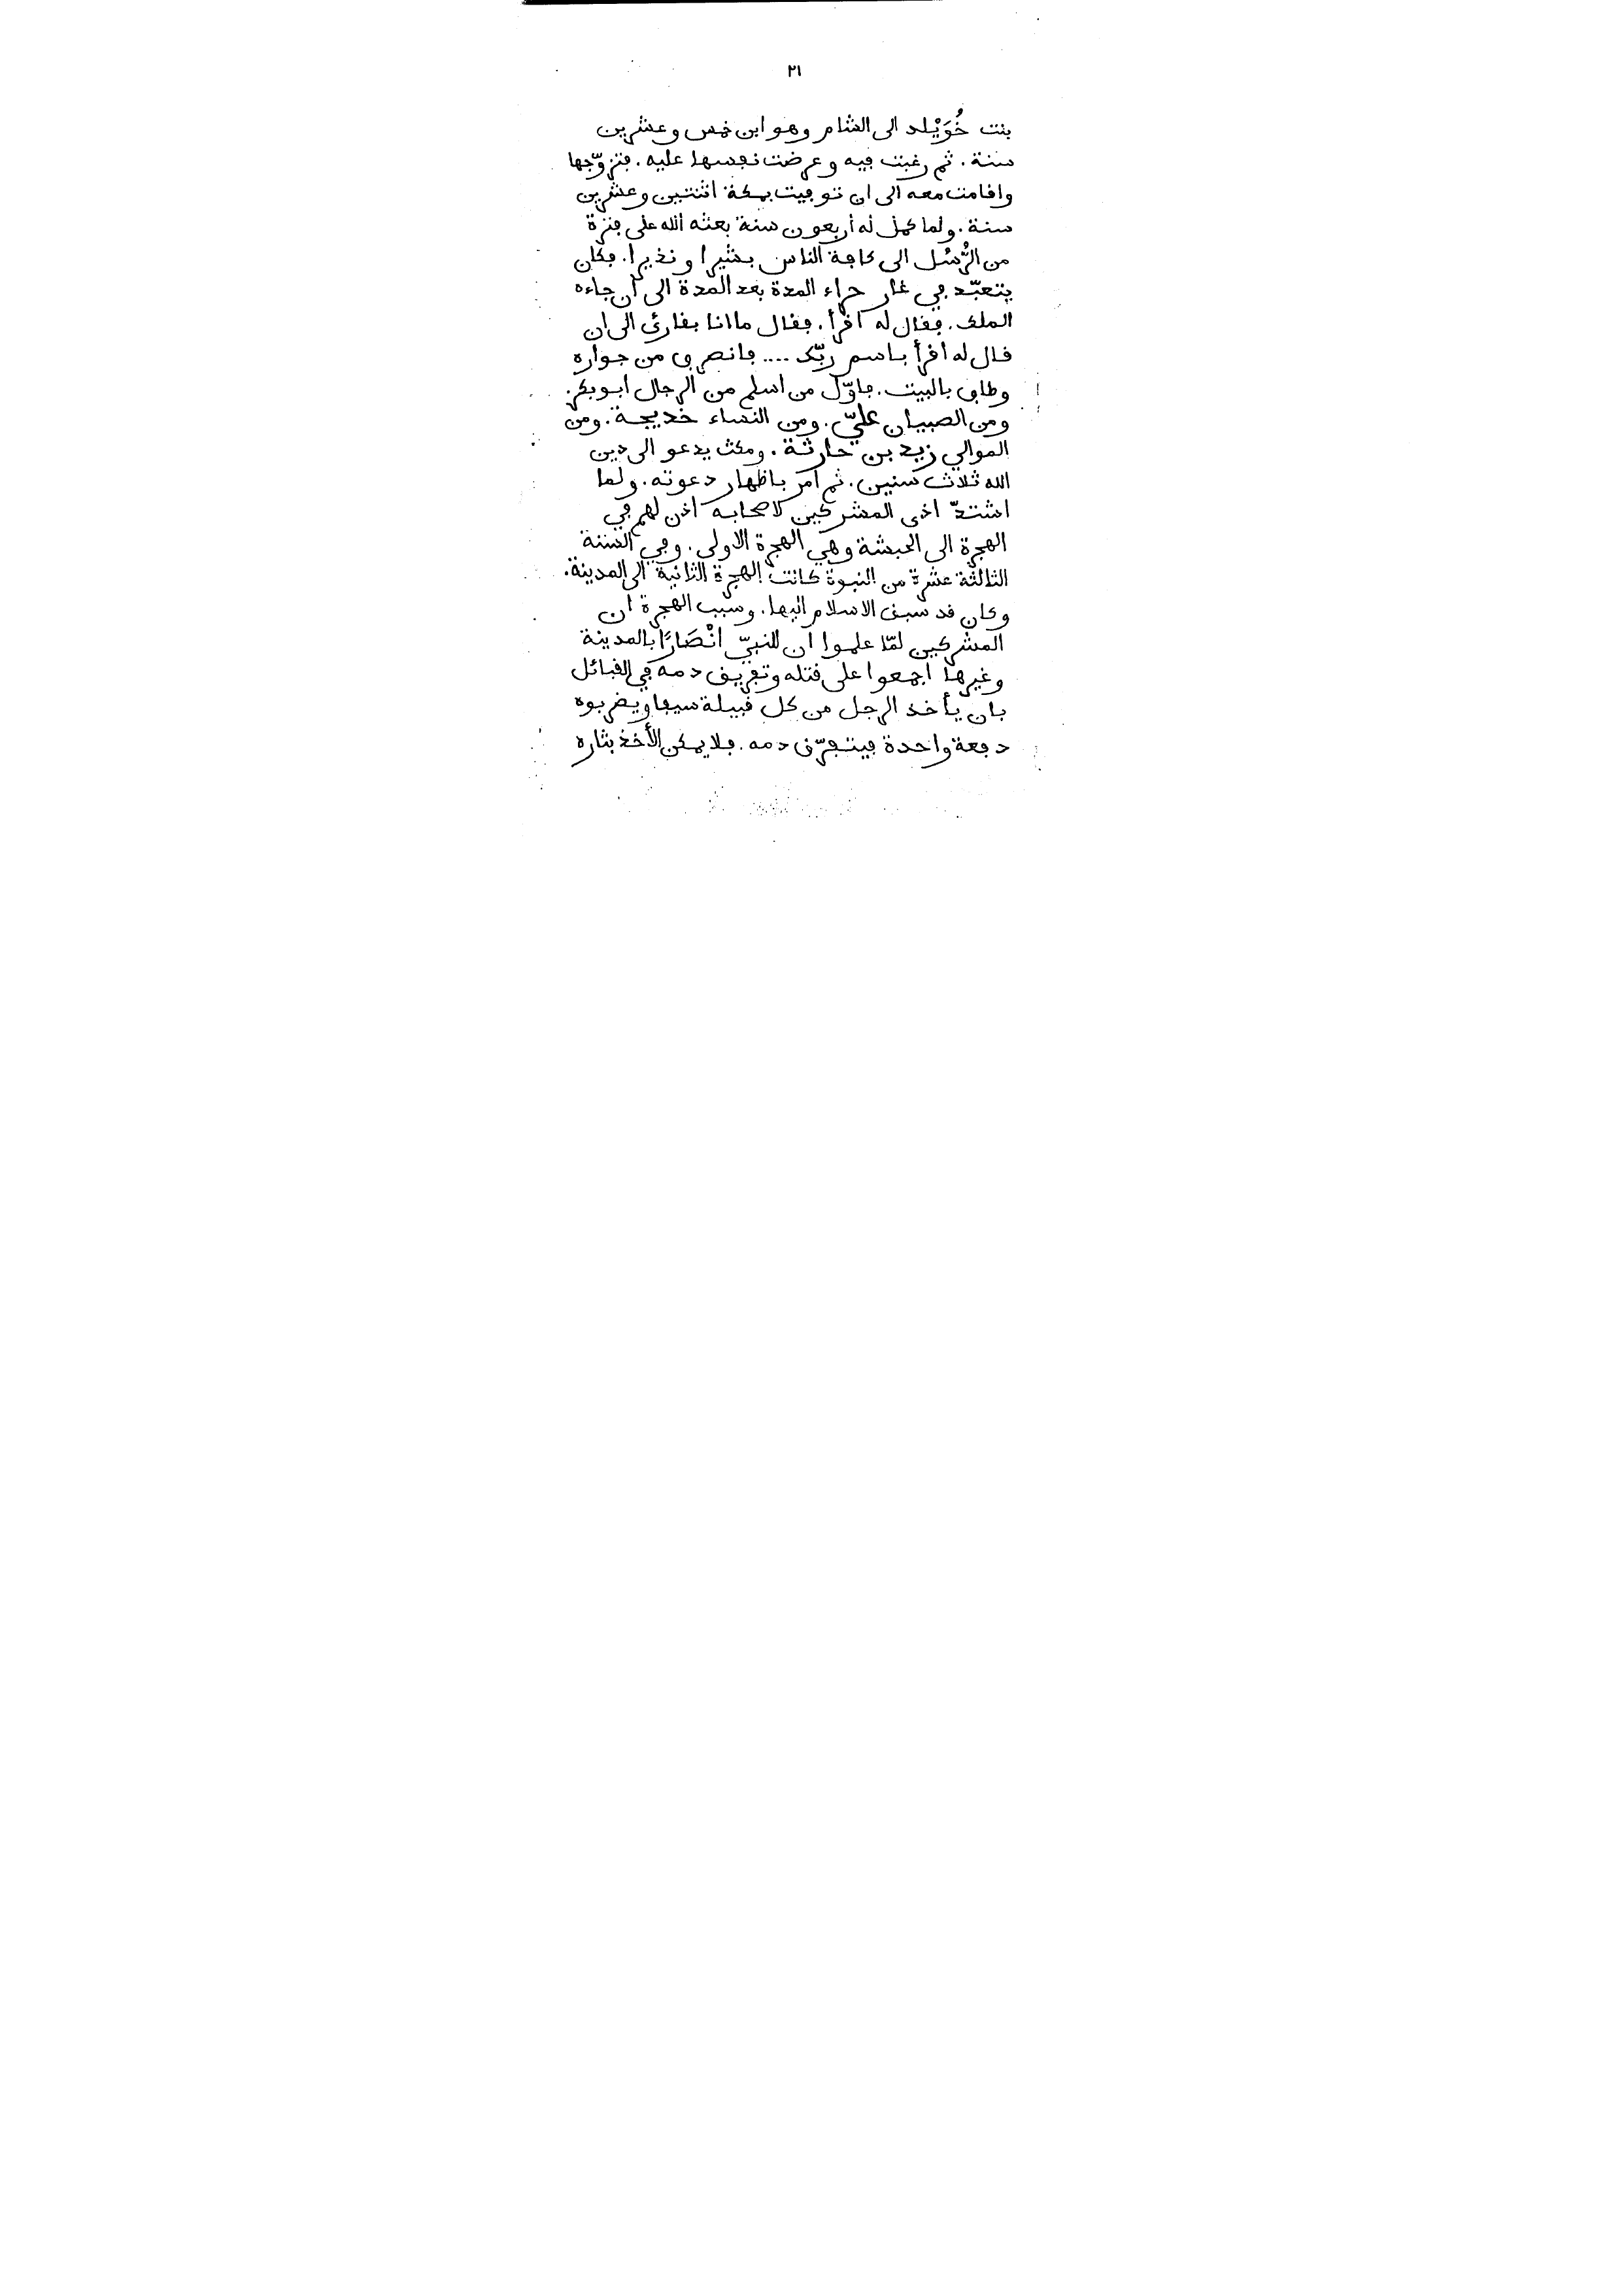 ٢١
بنت خُوَيْلد الى الشام وهو ابن خمس وعشرين
سنة. ثم رغبت فيه وعرضت نفسها عليه. فتزوّجها
واقامت معه الى ان توفيت بمكة اثنتين وعشرين
سنة. ولما كمل له أربعون سنة بعثه الله على فترة
من الرُّسُل الى كافة الناس بشيرا ونذيرا. فكان
يتعبّد في غار حراء المدة بعد المدة الى أن جاءه
الملك. فقال له اقرأ. فقال ما انا بقارئ الى ان
قال له اقرأ باسم ربّك .... فانصرف من جواره
وطاف بالبيت. فاوّل من اسلم من الرجال ابوبكر.
ومن الصبيان عليّ. ومن النساء خديجة. ومن
الموالي زيد بن حارثة. ومكث يدعو الى دين
الله ثلاث سنين. ثم أمر باظهار دعوته. ولما
اشتدّ اذى المشركين لاصحابه اذن لهم في
الهجرة الى الحبشة وهي الهجرة الاولى. وفي السنة
الثالثة عشرة من النبوة كانت الهجرة الثانية الى المدينة.
وكان قد سبق الاسلام اليها. وسبب الهجرة ان
المشركين لمّا علموا ان للنبيّ انْصَارًا بالمدينة
وغيرها اجمعوا على قتله وتفريق دمه في القبائل
بان يأخذ الرجل من كل قبيلة سيفا ويضربوه
دفعة واحدة فيتفرّق دمه. فلا يمكن الأخذ بثاره